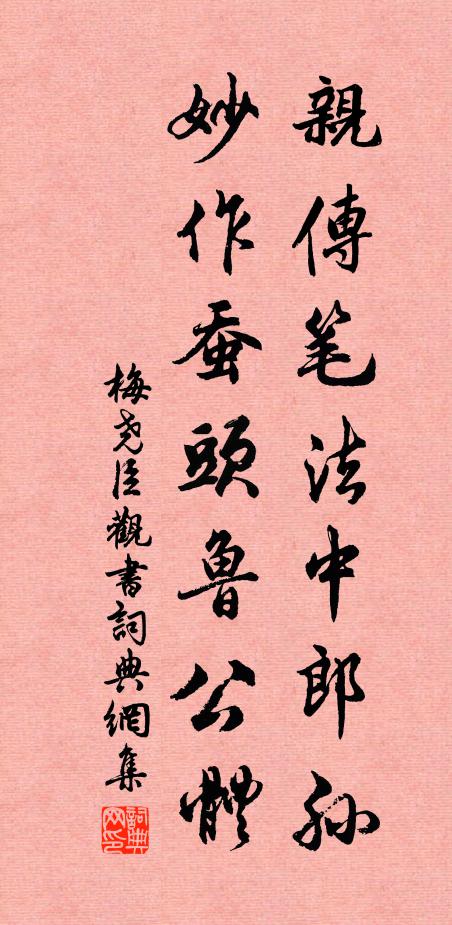 親傳笔法中郎孫
妙作蚕頭魯公體
梅尧臣觀書詞典網集
詞典网印